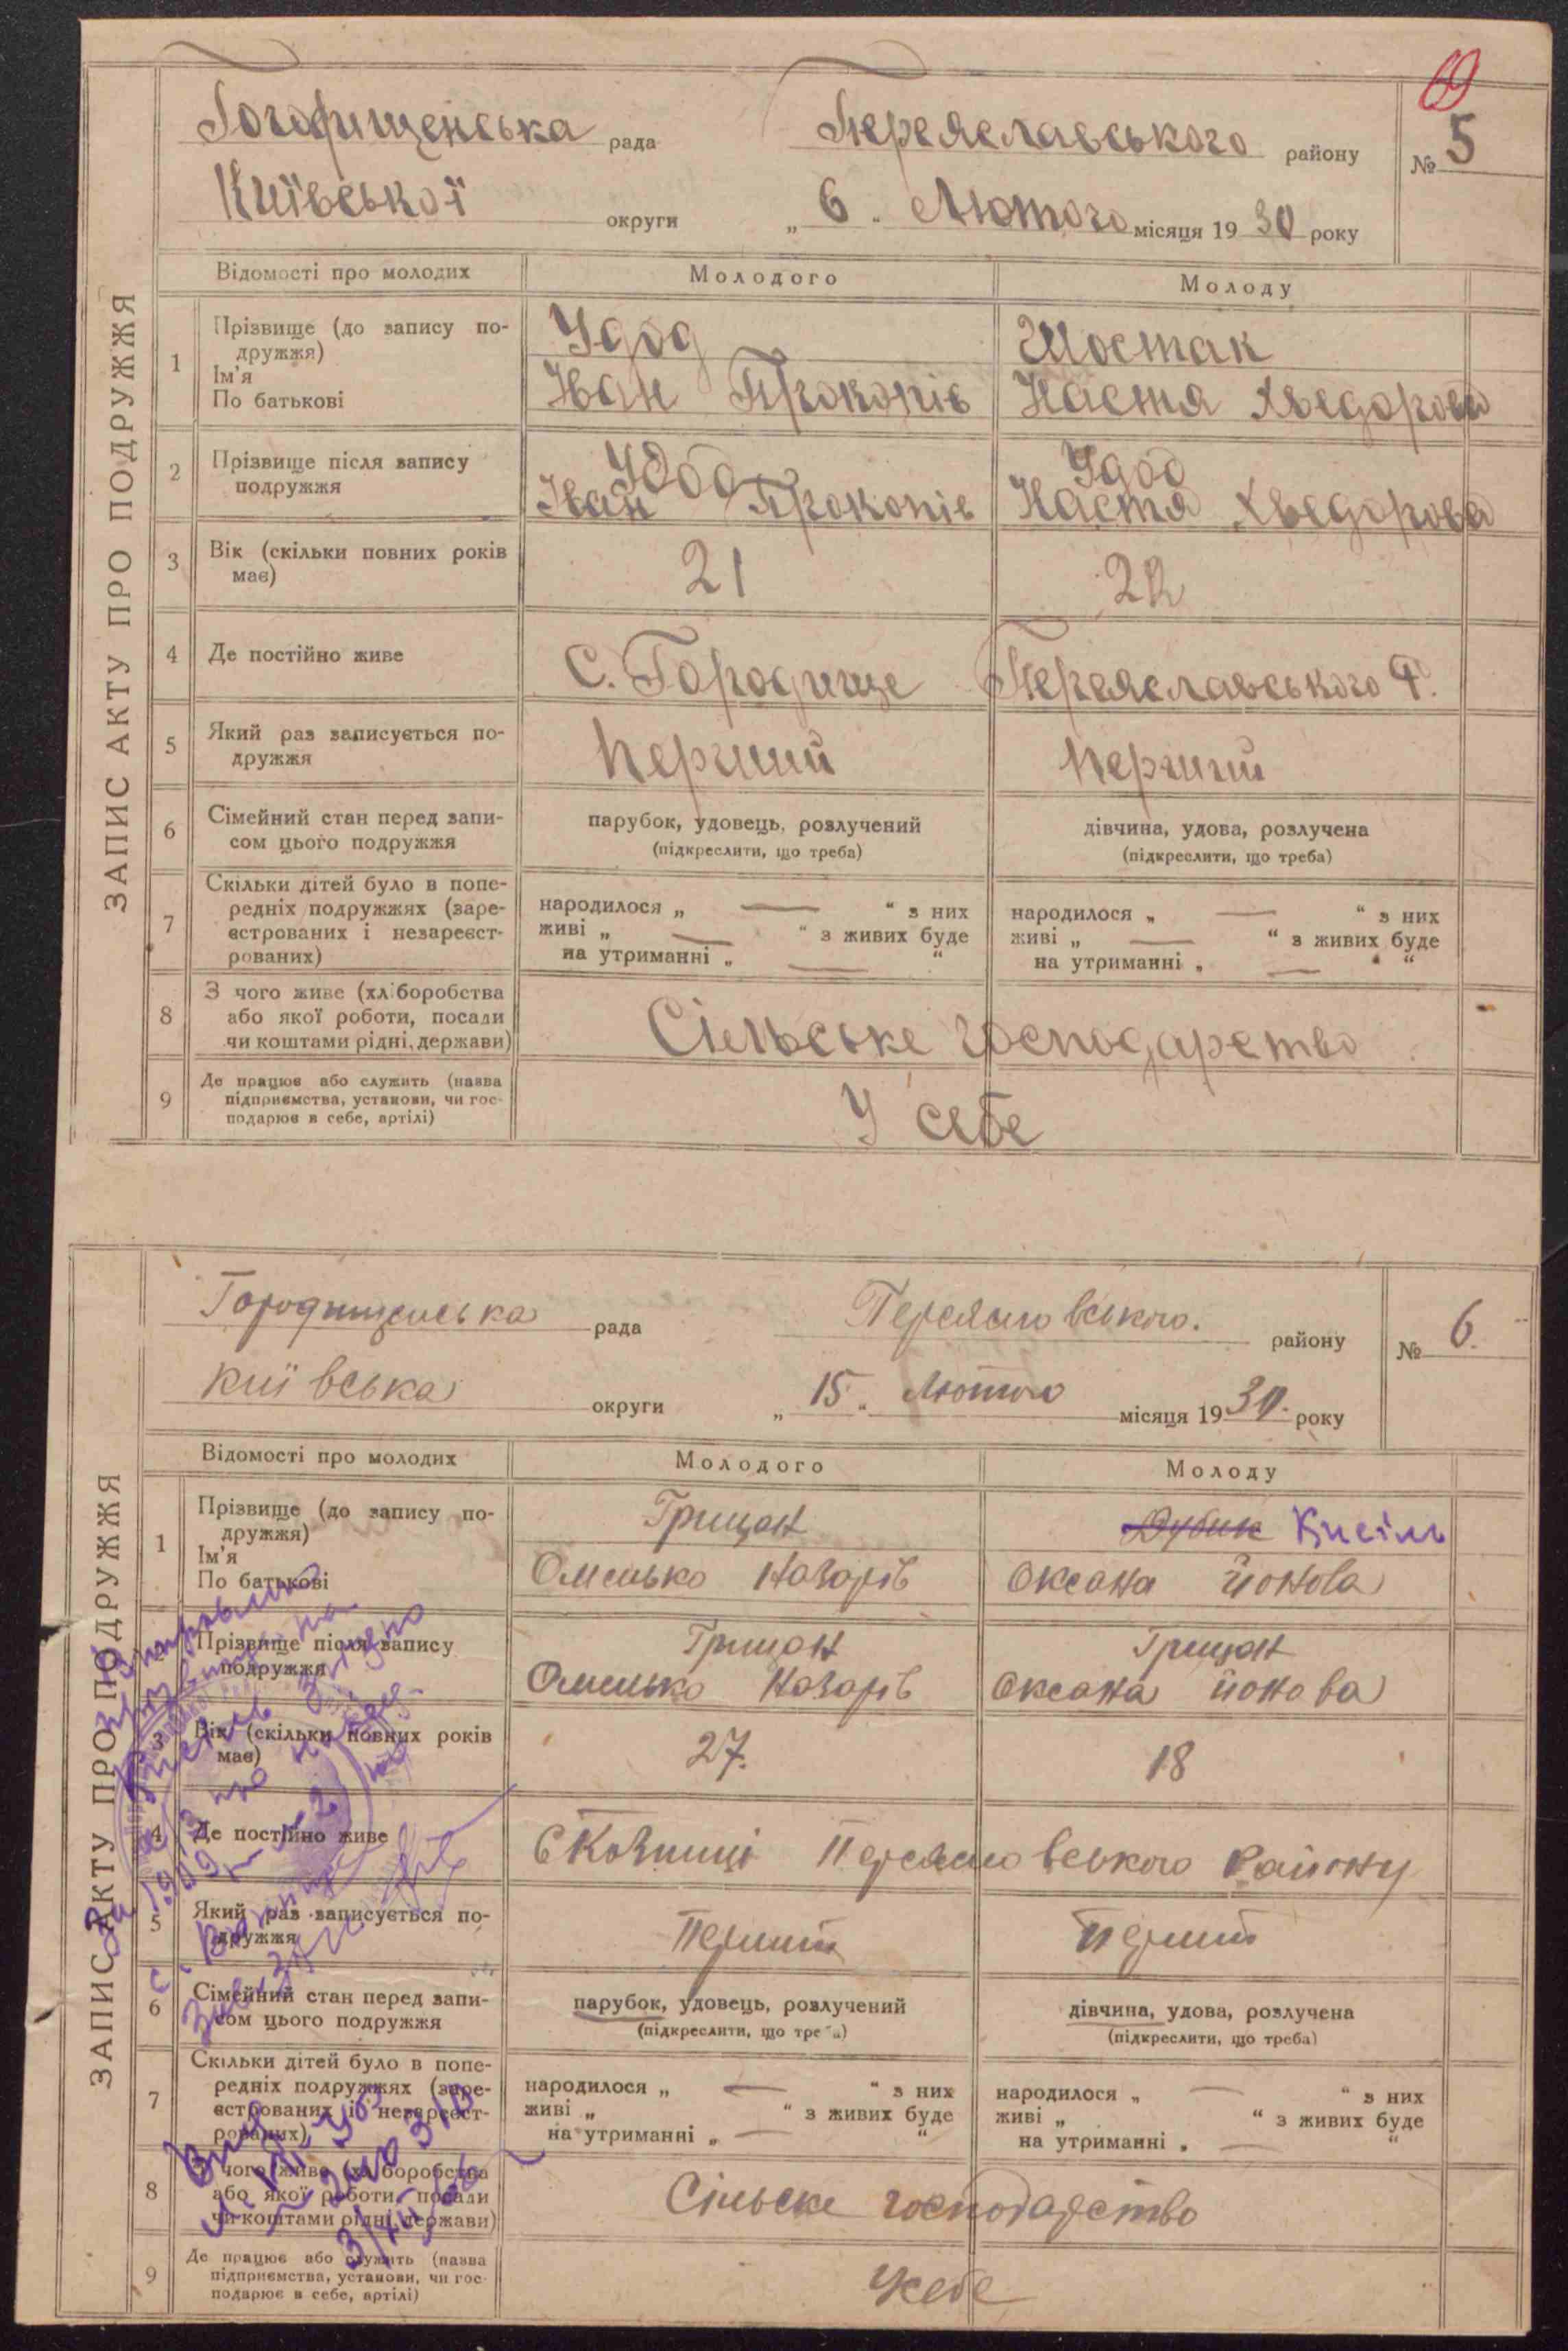 69
Городищенська рада Переяславського району № 5
Київської округи „ 6 " Лютого місяця 19 30 року
ЗАПИС АКТУ ПРО ПОДРУЖЖЯ
Відомості про молодих Молодого Молоду
1 Прізвище (до запису по- Удод Шостак
дружжя)
Ім'я Іван Прокопів Настя Хведорова
По батькові
2 Прізвище після запису Удод Удод
подружжя Іван Прокопів Настя Хведорова
3 Вік (скільки повних років 21 22
має)
4 Де постійно живе С. Городище Переяславського Р.
5 Який раз записується по- перший перший
дружжя
6 Сімейний стан перед запи- парубок, удовець, розлучений дівчина, удова, розлучена
сом цього подружжя (підкреслити, що треба) (підкреслити, що треба)
7 Скільки дітей було в попе-
редніх подружжях (заре- народилося „ — " з них народилося „ — " з них
єстрованих і незареєст- живі „ — " з живих буде живі „ — " з живих буде
рованих) на утриманні „ — " на утриманні „ — "
8 З чого живе (хліборобства
або якої роботи, посади Сільське господарство
чи коштами рідні, держави)
9 Де працює або служить (назва
підприємства, установи, чи гос- У себе
подарює в себе, артілі)
Городищенська рада Переяславського. району № 6.
київська округи „ 15 " Лютого місяця 19 30. року
ЗАПИС АКТУ ПРО ПОДРУЖЖЯ
Відомості про молодих Молодого Молоду
1 Прізвище (до запису по- Грицан Дубик Кисіль
дружжя)
Ім'я Омелько Назарів Оксана Йонова
По батькові
Прізвище після запису Грицан Грицан
подружжя Омелько Назарів Оксана йонова
3 Вік (скільки повних років 27. 18
має)
4 Де постійно живе С Козинці Переяславського Району
5 Який раз записується по- Перший Перший
дружжя
6 Сімейний стан перед запи- парубок, удовець, розлучений дівчина, удова, розлучена
сом цього подружжя (підкреслити, що треба) (підкреслити, що треба)
7 Скільки дітей було в попе-
редніх подружжях (заре- народилося „ — " з них народилося „ — " з них
єстрованих і незареєст- живі „ — " з живих буде живі „ — " з живих буде
рованих) на утриманні „ — " на утриманні „ — "
8 З чого живе (хліборобства
або якої роботи, посади Сільске господарство
чи коштами рідні, держави)
9 Де працює або служить (назва
підприємства, установи, чи гос- Усебе
подарює в себе, артілі)